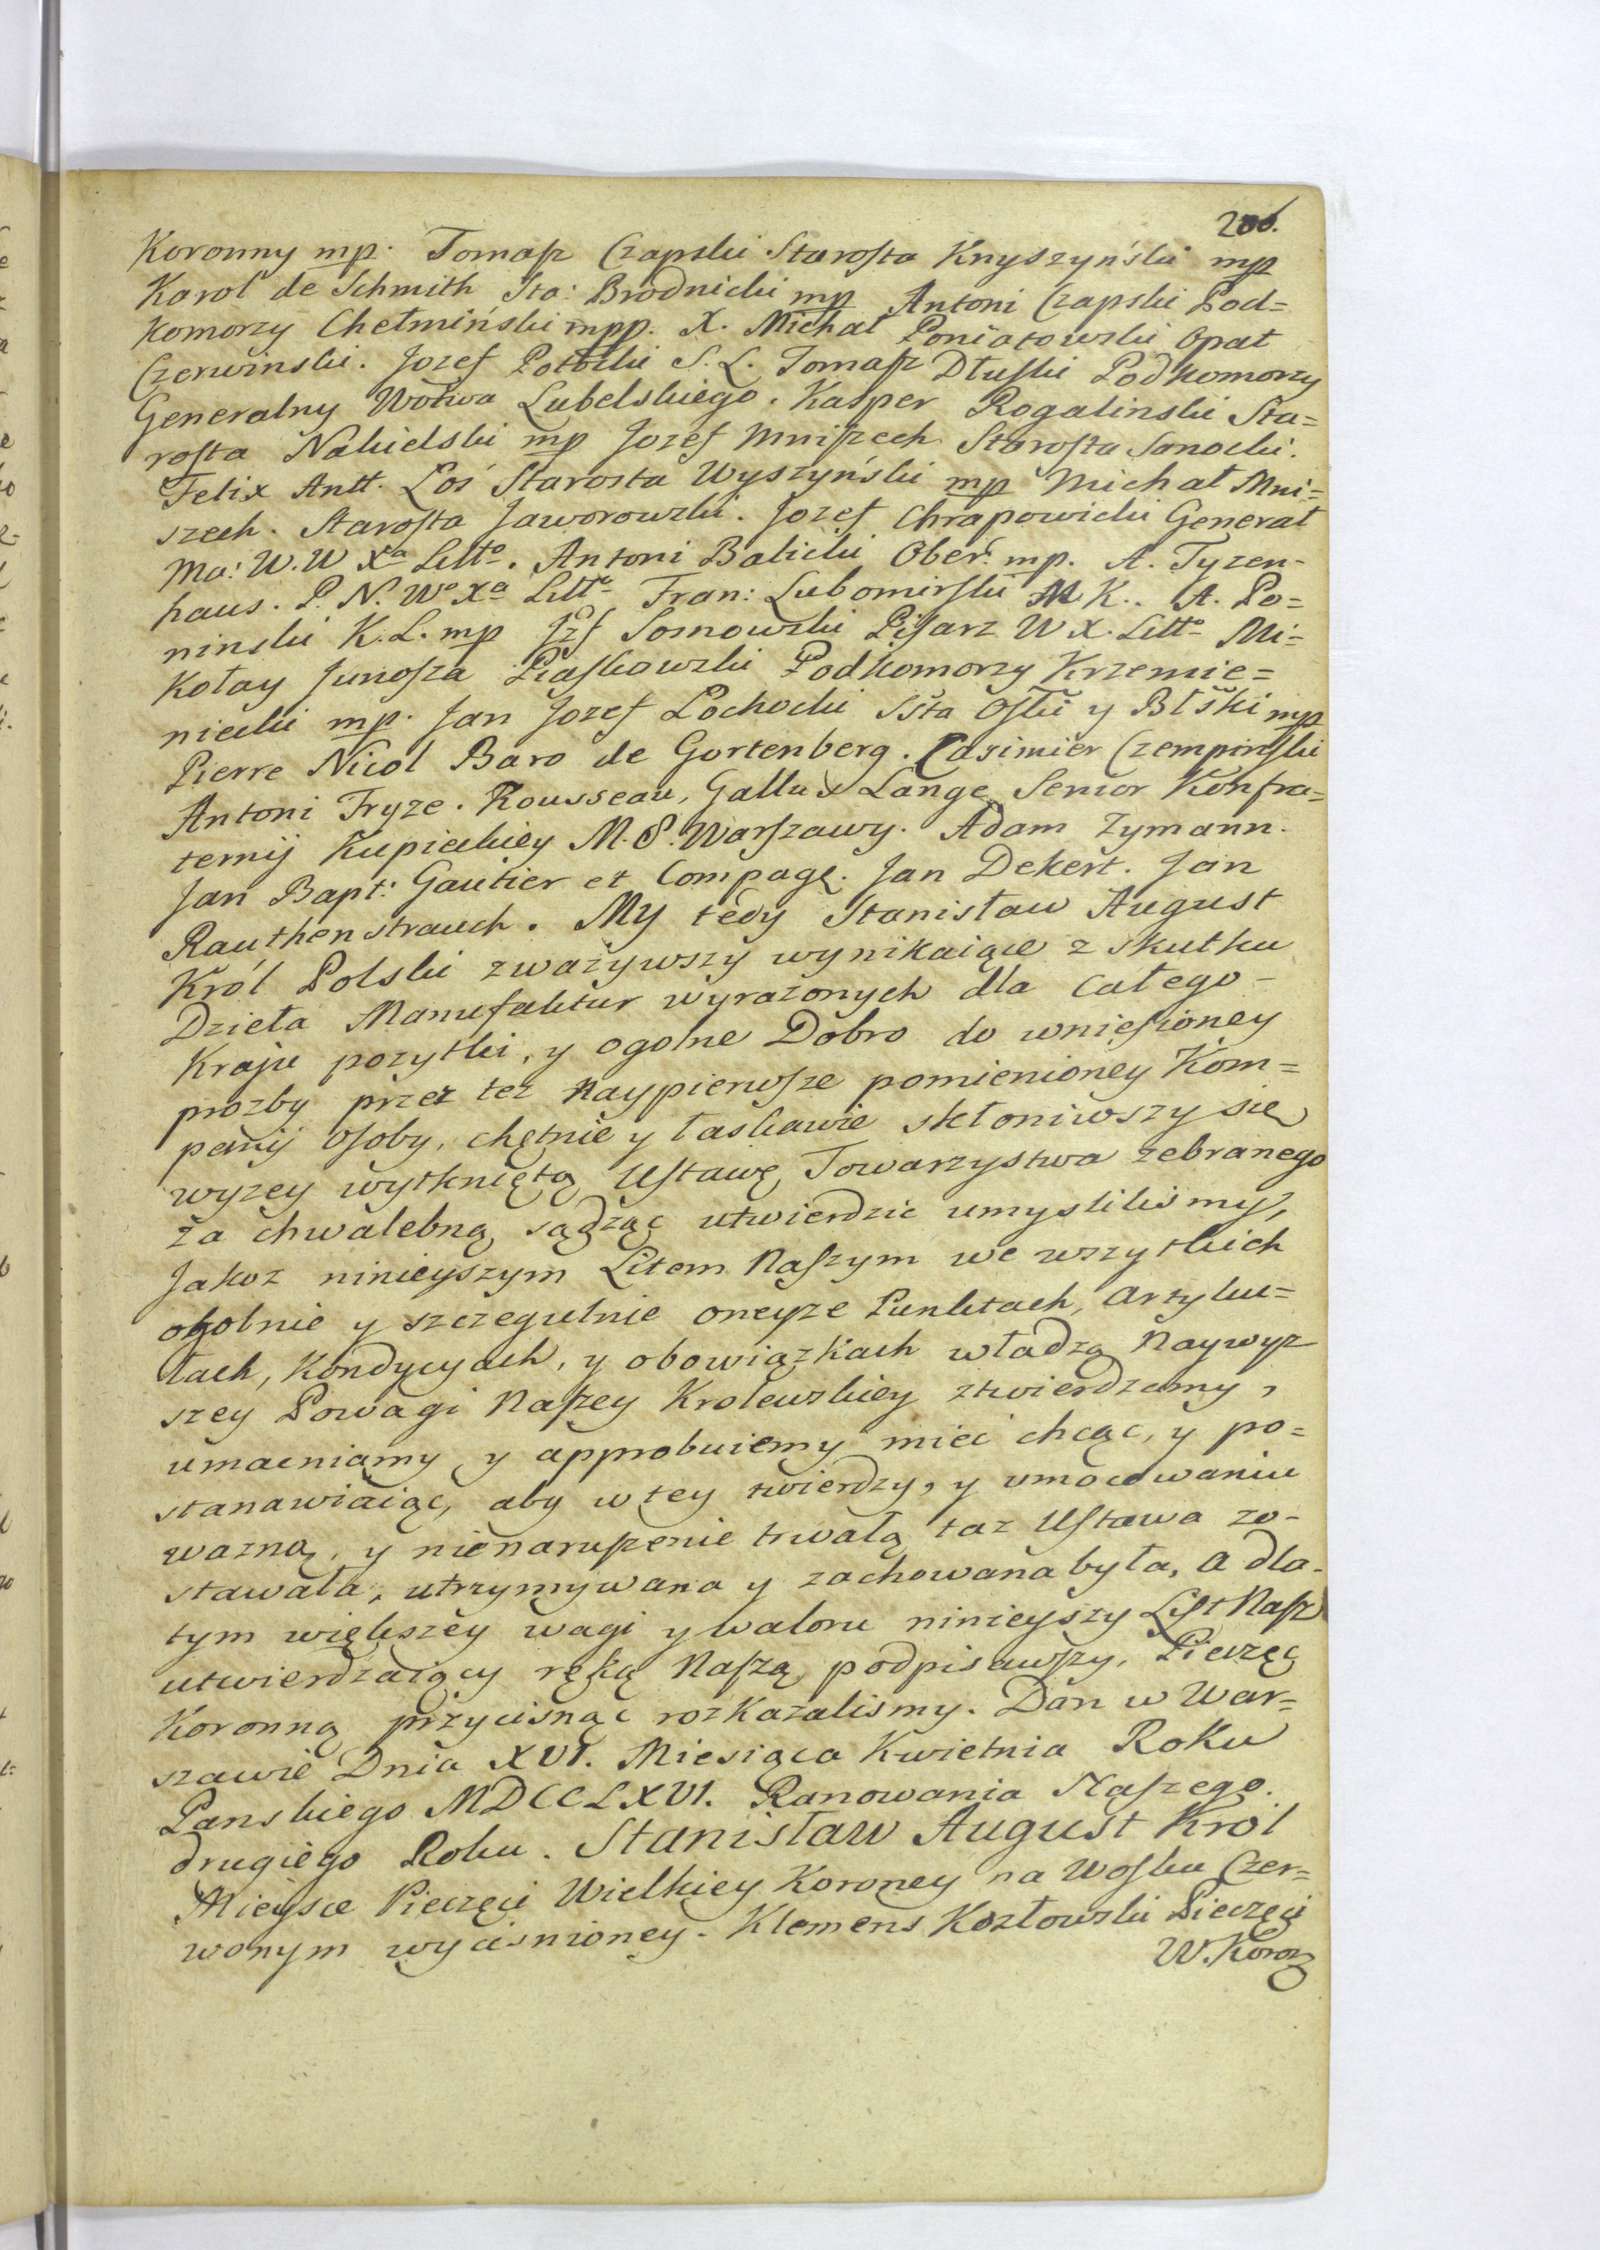 206.
Koronny mp. Tomasz Czapski Starosta Knyszyński mp
Karol de Schmith Sta: Brodnicki mp Antoni Czapski Pod=
komorzy Chełmiński mpp. X. Michał Poniatowski Opat
Czerwinski. Jozef Potocki S. L. Tomasz Dłuski Podkomorzy
Generalny Wotwa Lubelskiego. Kasper Rogalinski Sta=
rosta Nakielski mp Jozef Mniszech Starosta Sanocki.
Felix Antt. Łoś Starosta Wyszyński mp Michał Mni=
szech. Starosta Jaworowski. Jozef Chrapowicki Generał
Ma: W. W Xa Litto. Antoni Balicki Ober. mp. A. Tyzen-
haus. P. N. Wo Xa Litto Fran: Lubomirski M K. A. Po=
ninski K. L. mp Jzf Sosnowski Pisarz W X. Litto Mi=
kołay Junosza Piaskowski Podkomorzy Krzemie=
niecki mp. Jan Jozef Łochocki Ssta Osiki y Błski mp
Pierre Nicol Baro de Gortenberg. Casimier Czempinski
Antoni Fryze. Rousseau, Gallu x Lange Senior Konfra=
ternij Kupieckiey M. S. Warszawy. Adam Zymann.
Jan Bapt: Gautier et Compagę. Jan Dekert. Jan
Rauthenstrauch. My tedy Stanisław August
Król Polski zważywszy wynikaiące z skutku
Dzieła Manufaktur wyrażonych dla całego -
Kraju pozytki, y ogolne Dobro do wniesioney
prozby przez tez Naypierwsze pomienioney Kom=
panij Osoby, chętnie y łaskawie skłoniwszy się
wyzey wytkniętą Ustawę Towarzystwa zebranego
za chwalebną sądząc utwierdzic umyslilismy,
Jakoz ninieyszym Litem Naszym we wszytkich
ogolnie y szczegulnie oneyze Punktach, Artyku=
łach, Kondycyach, y obowiązkach władzą Naywyz
szey Powagi Naszey Krolewskiey ztwierdzamy,
umacniamy y approbuiemy mieć chcąc, y po=
stanawiaiąc, aby w tey twierdzy, y umocowaniu
wazną, y nienaruszenie trwałą taz Ustawa zo-
stawała, utrzymywana y zachowana była, a dla-
tym większey wagi y waloru ninieyszy List Nasz
utwierdzaiący ręką Naszą podpisawszy, Pieczęć
Koronną przycisnąć rozkazalismy. Dan w War=
szawie Dnia XVI. Miesiąca Kwietnia Roku
Panskiego MDCCLXVI. Panowania Naszego.
drugiego Roku. Stanisław August Król
Mieysce Pieczęci Wielkiey Koroney na Wosku Czer=
wonym wyciśnioney. Klemens Kozłowski Pieczęci
W. Koron